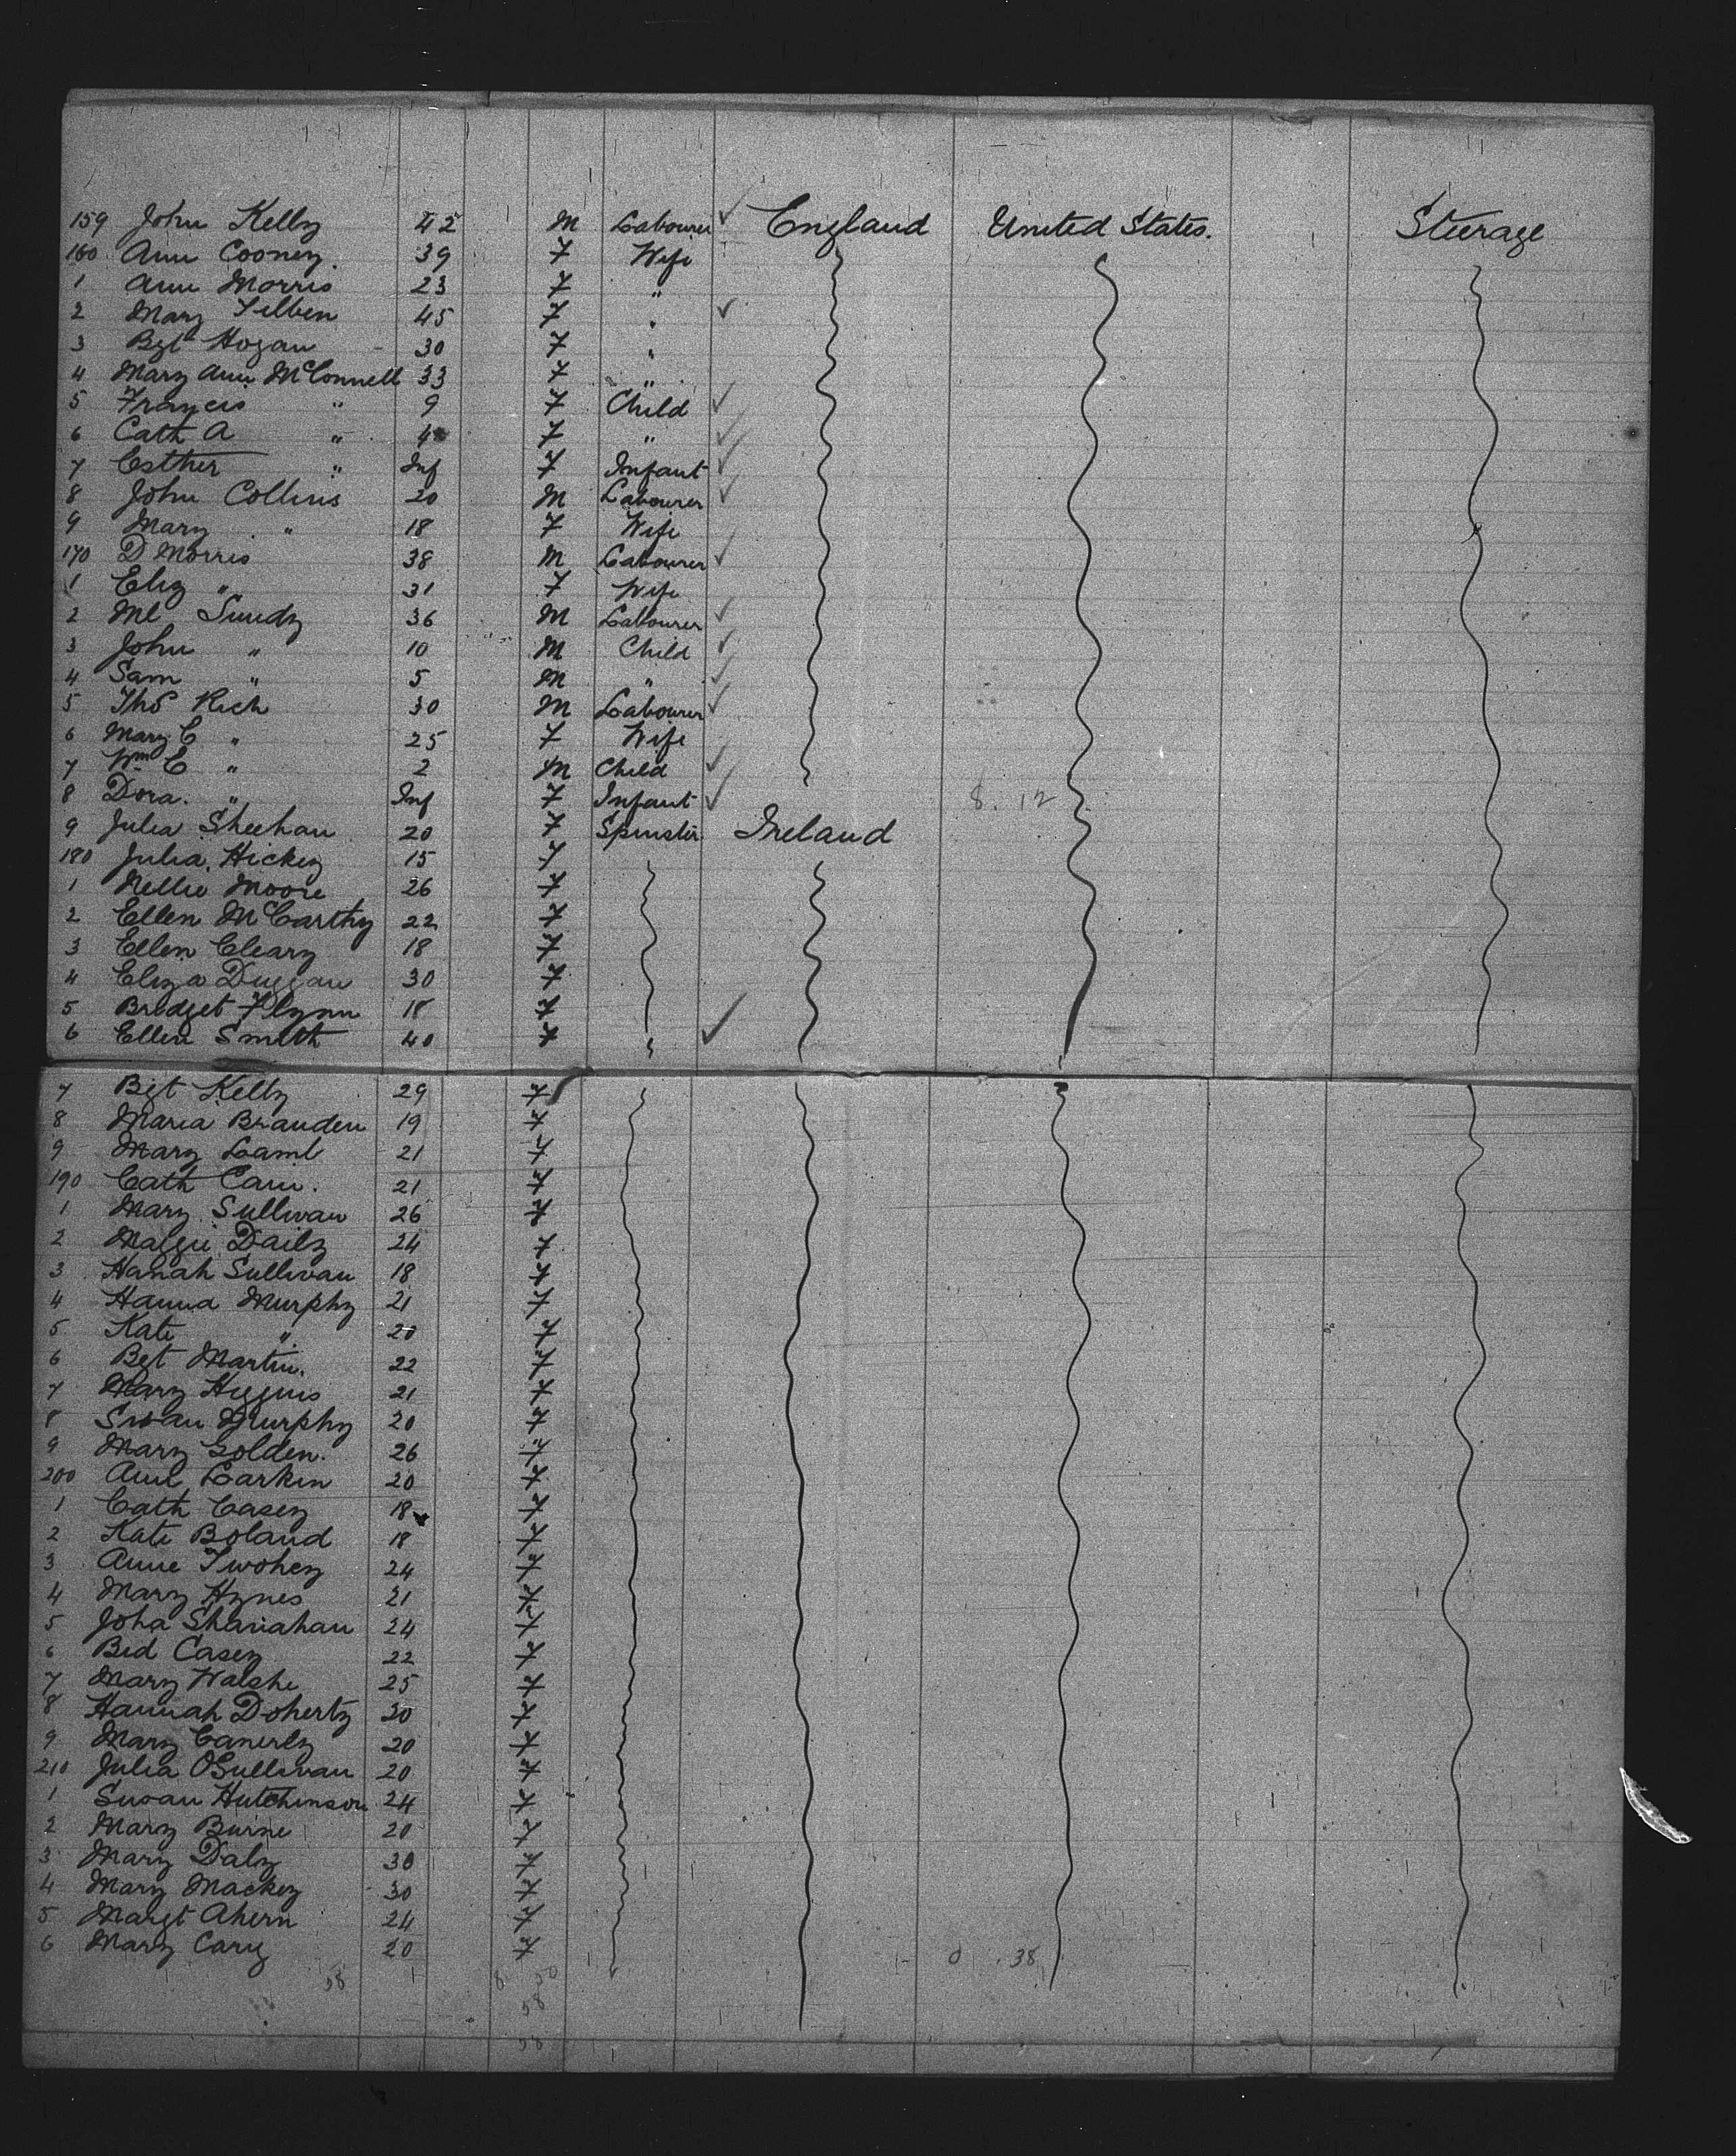 159 John Kelly 42 M Labourer England United States. Steerage
160 Ann Cooney 39 F Wife
1 Ann Morris 23 F "
2 Mary 45 F "
3 Bgt Hogan 30 F "
4 Mary Ann McConnell 33 F "
5 Francis " 9 F Child
6 Cath A " 4 F "
7 Esther " Inf F Infant
8 John Collins 20 M Labourer
9 Mary " 18 F Wife
170 D Morris 38 M Labourer
1 Eliz " 31 F Wife
2 Ml 36 M Labourer
3 John " 10 M Child
4 Sam " 5 M "
5 Thos Rich 30 M Labourer
6 Mary C " 25 F Wife
7 Wm E " 2 M Child
8 Dora. " Inf F Infant 8. 12
9 Julia Sheehan 20 F Spinster Ireland
180 Julia Hickey 15 F
1 Nellie Moore 26 F
2 Ellen McCarthy 22 F
3 Ellen Cleary 18 F
4 Eliza Duggan 30 F
5 Bridget Flynn 18 F
6 Ellen Smith 40 F
7 Bgt Kelly 29 F
8 Maria Branden 19 F
9 Mary Lamb 21 F
190 Cath 21 F
1 Mary Sullivan 26 F
2 Maggie Daily 24 F
3 Hanah Sullivan 18 F
4 Hanna Murphy 21 F
5 Kate " 20 F
6 Bgt Martin. 22 F
7 Mary Higgins 21 F
8 Susan Murphy 20 F
9 Mary Golden. 26 F
200 Ann Larkin 20 F
1 Cath Casey 18 F
2 Kate Boland 18 F
3 Anne Twohey 24 F
4 Mary Hynes 21 F
5 Joha Shanahan 24 F
6 Bid Casey 22 F
7 Mary Walshe 25 F
8 Hannah Doherty 20 F
9 Mary 20 F
210 Julia OSullivan 20 F
1 Susan Hutchinson 24 F
2 Mary Burne 20 F
3 Mary Daly 30 F
4 Mary Mackey 30 F
5 Margt Ahern 24 F
6 Mary Cary 20 F 38
58 8 50
58
58